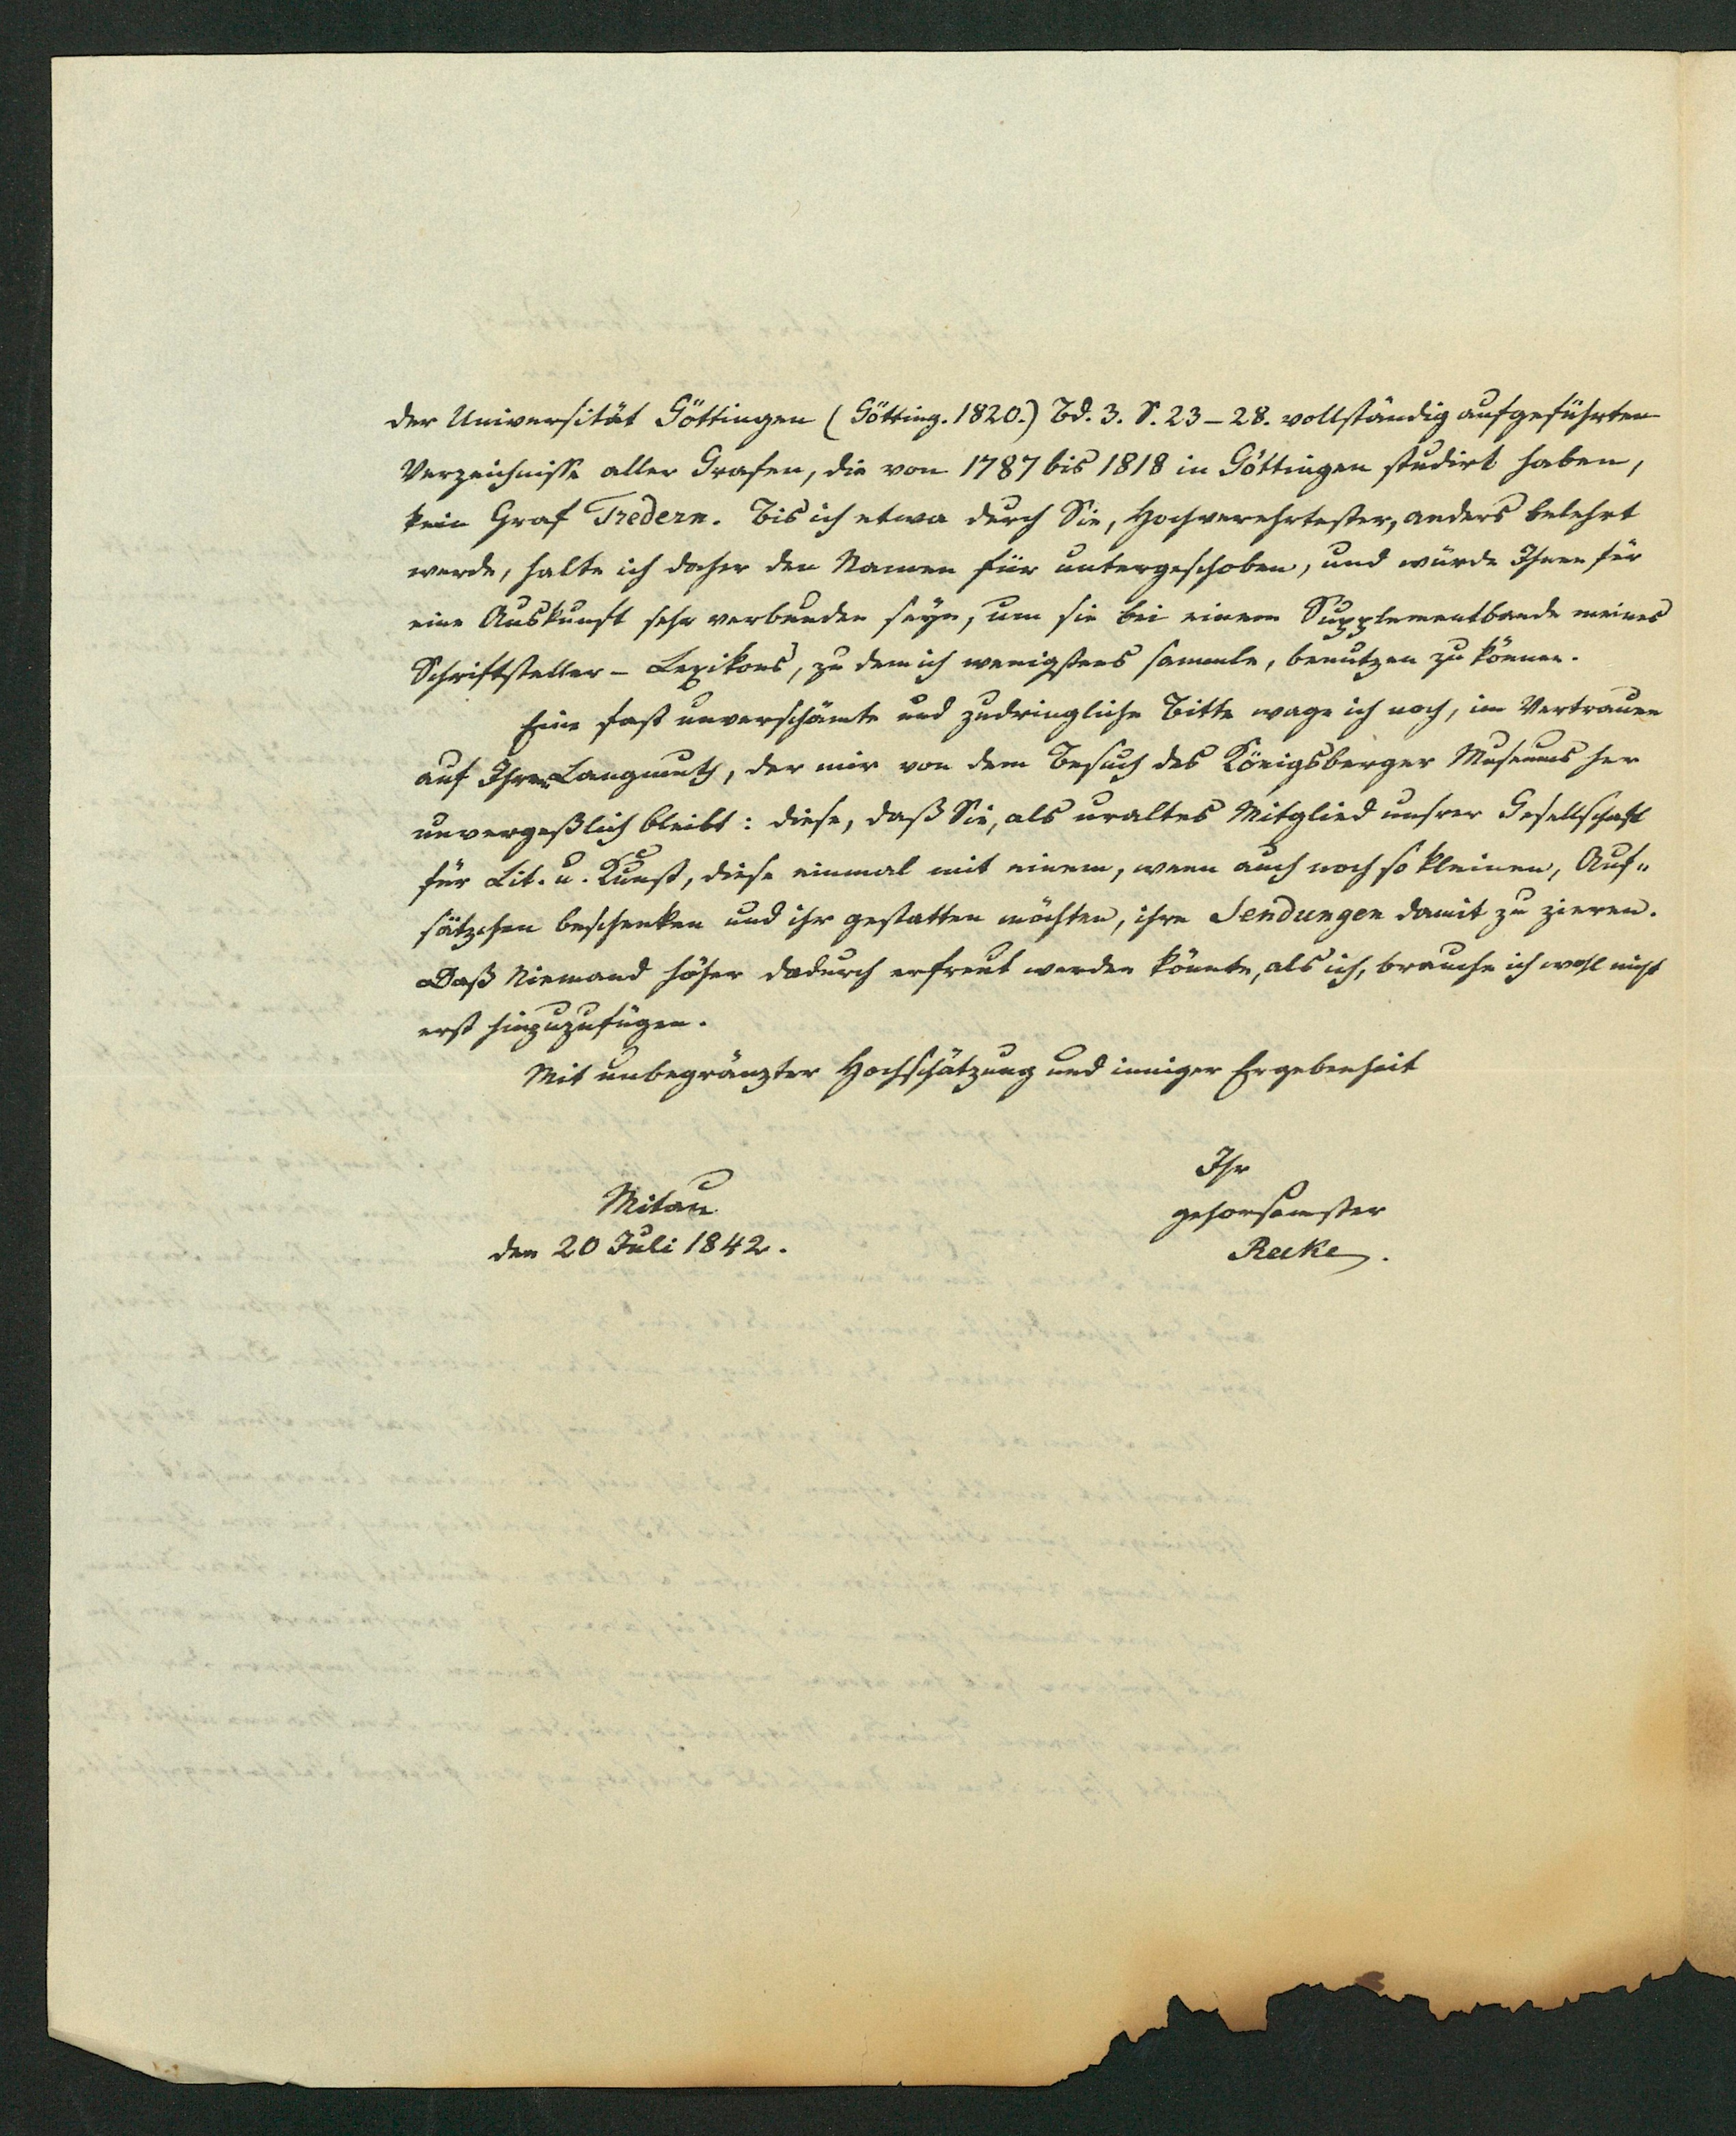 der Universität Göttingen (Götting. 1820.) Bd. 3. S. 23–28. vollständig aufgeführten
Verzeichnisse aller Grafen, die von 1787 bis 1818 in Göttingen studirt haben,
kein Graf Tredern. Bis ich etwa durch Sie, Hochverehrtester, anders belehrt
werde, halte ich daher den Namen für untergeschoben, und würde Ihnen für
eine Auskunft sehr verbunden seyn, um sie bei einem Supplementbande meines
Schriftsteller-Lexikons, zu dem ich wenigstens sammle, benutzen zu können.
Eine fast unverschämte und zudringliche Bitte wage ich noch, im Vertrauen
auf Ihren Langmuth, der mir von dem Besuch des Königsberger Museums her
unvergeßlich bleibt: diese, daß Sie, als uraltes Mitglied unsrer Gesellschaft
für Lit. u. Kunst, diese einmal mit einem, wenn auch noch so kleinen, Auf„
sätzchen beschenken und ihr gestatten möchten, ihre Sendungen damit zu zieren.
Daß Niemand höher dadurch erfreut werden könnte, als ich, brauche ich wohl nicht
erst hinzuzufügen.
Mit unbegränzter Hochschätzung und inniger Ergebenheit
Ihr
Mitau
gehorsamster
den 20 Juli 1842.
Recke.